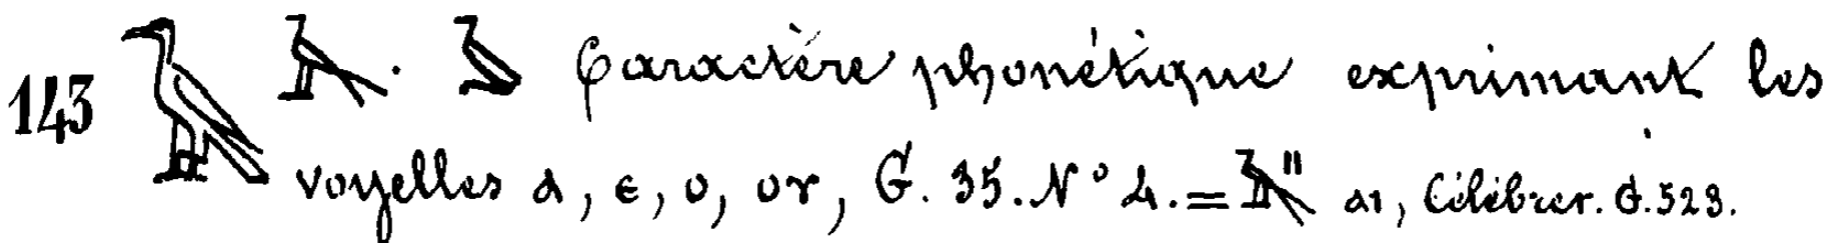 143 𓅐 𓅐. 𓅐 Caractère phonétique exprimant les
voyelles ⲁ, ⲉ, ⲟ, ⲟⲩ, G. 35. N° 4. = " ⲁⲓ, Célébrer. G. 523.